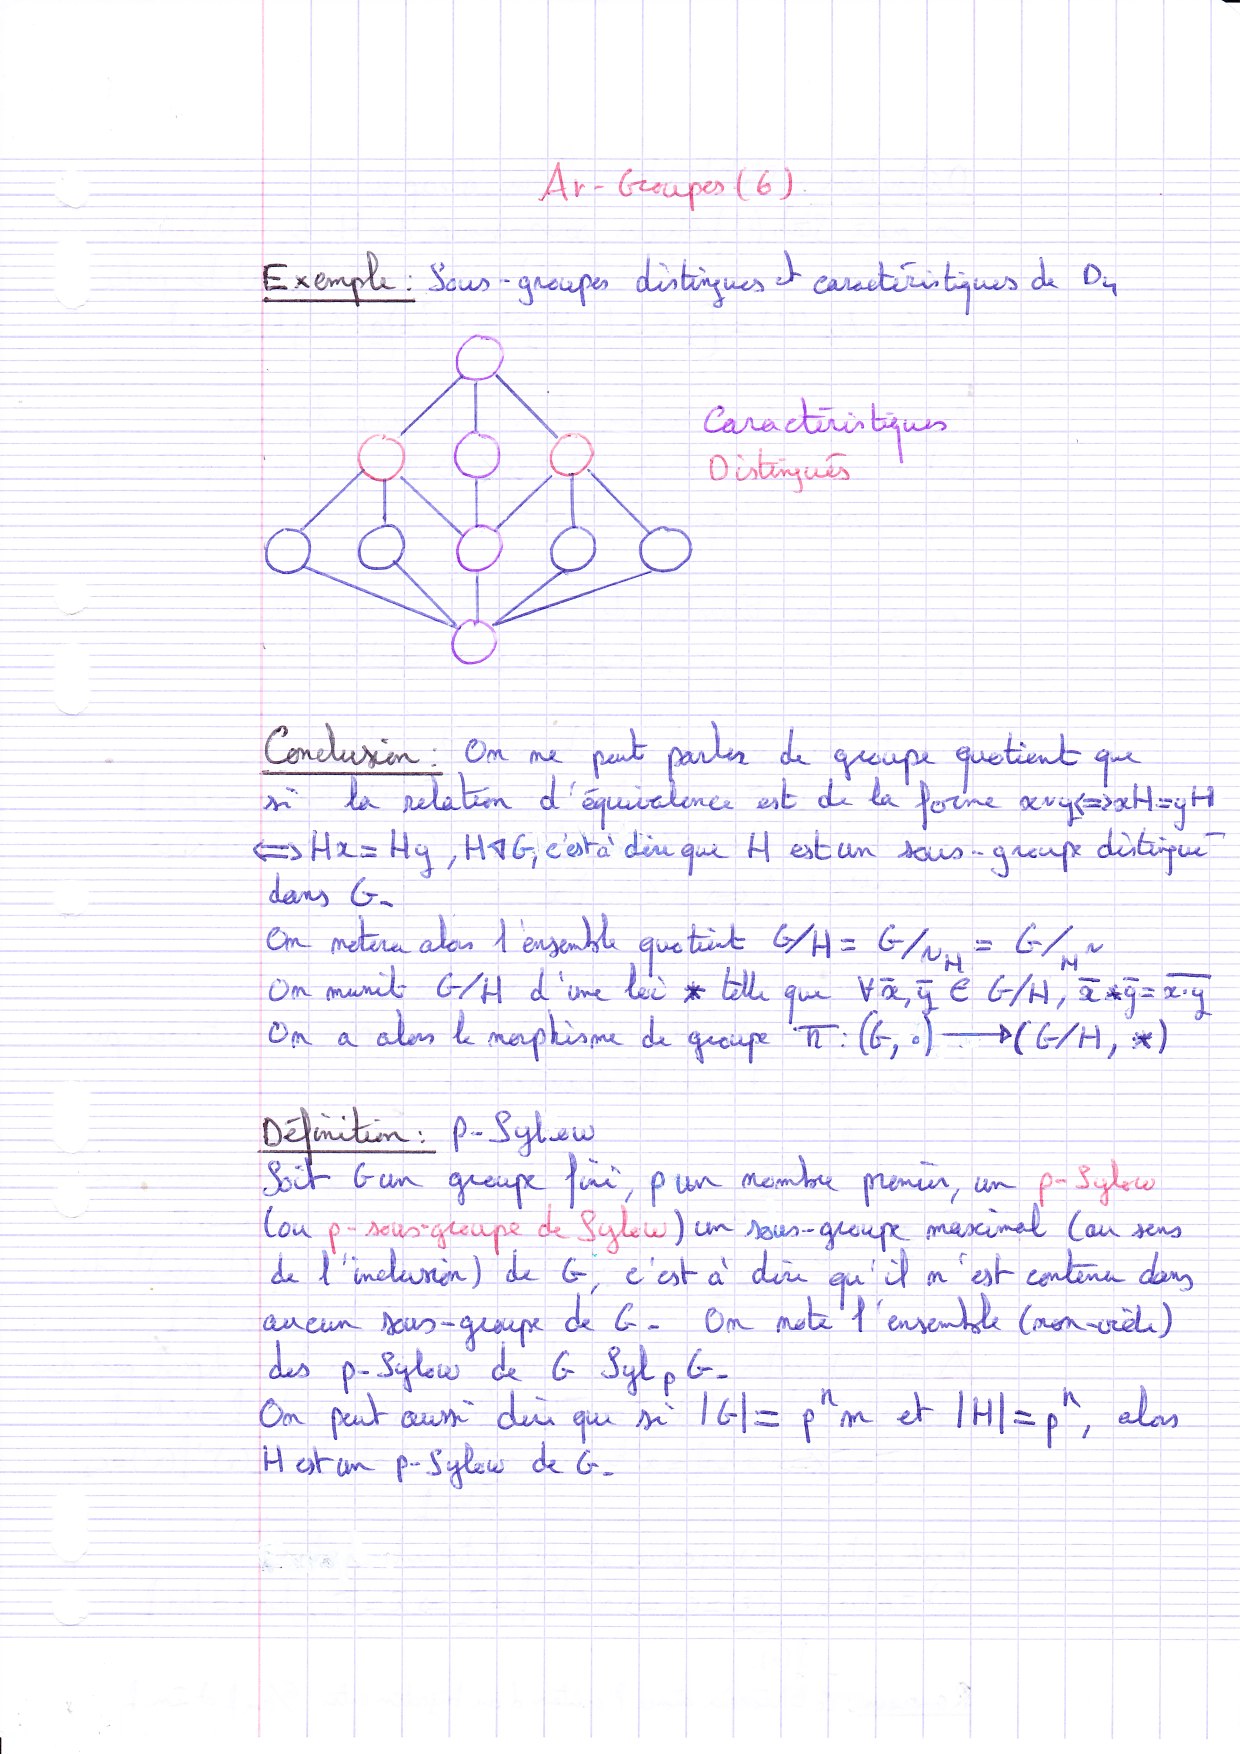 Ar-Groupes (6)
Exemple : Sous-groupes distingués et caractéristiques de D₄
Caractéristiques
Distingués
Conclusion : On ne peut parler de groupe quotient que
si la relation d'équivalence est de la forme x~y⟺xH=yH
⟺Hx=Hy, H⊲G, c'est à dire que H est un sous-groupe distingué
dans G.
On notera alors l'ensemble quotient G/H = G/~_H = G/_H~
On munit G/H d'une loi * telle que ∀x̄,ȳ ∈ G/H, x̄*ȳ=\overline{x·y}
On a alors le morphisme de groupe π : (G, ∘) ⟶ (G/H, *)
Définition : p-Sylow
Soit G un groupe fini, p un nombre premier, un p-Sylow
(ou p-sous-groupe de Sylow) un sous-groupe maximal (au sens
de l'inclusion) de G, c'est à dire qu'il n'est contenu dans
aucun sous-groupe de G. On note l'ensemble (non-vide)
des p-Sylow de G Syl_p G.
On peut aussi dire que si |G| = pⁿm et |H| = pⁿ, alors
H est un p-Sylow de G.